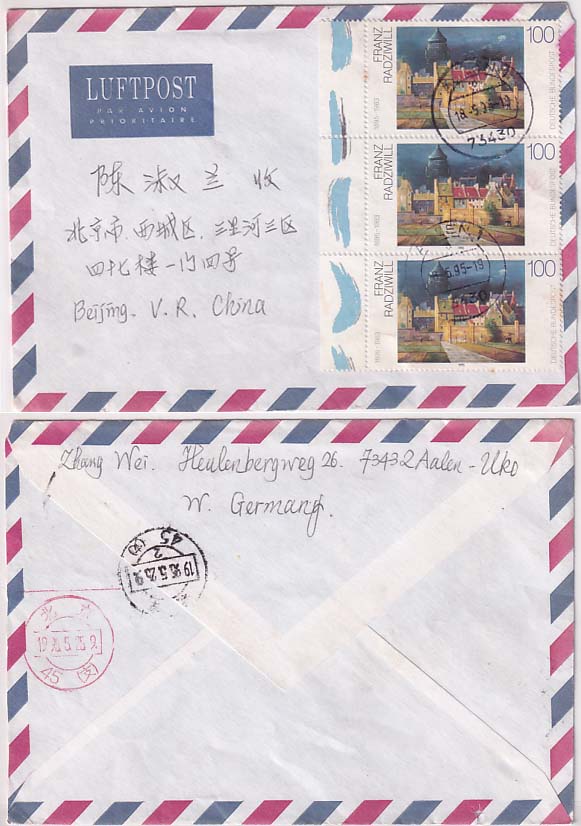 LUFTPOST
PAR AVION
PRIORITAIRE
陈淑兰 收
北京市.西城区.三里河三区
四十七楼一门四号
Beijing. V. R. China
FRANZ
RADZIWILL
1895-1983
100
DEUTSCHE BUNDESPOST
73430
FRANZ
RADZIWILL
1895-1983
100
DEUTSCHE BUNDESPOST
FRANZ
RADZIWILL
1895-1983
100
DEUTSCHE BUNDESPOST
.5.95-18
Zhang Wei. Heulenbergweg 26. 73432 Aalen-Uko
W. Germany.
45 (支)
2
1995.5.25.9
北京
1995.5.25.9
45 (支)